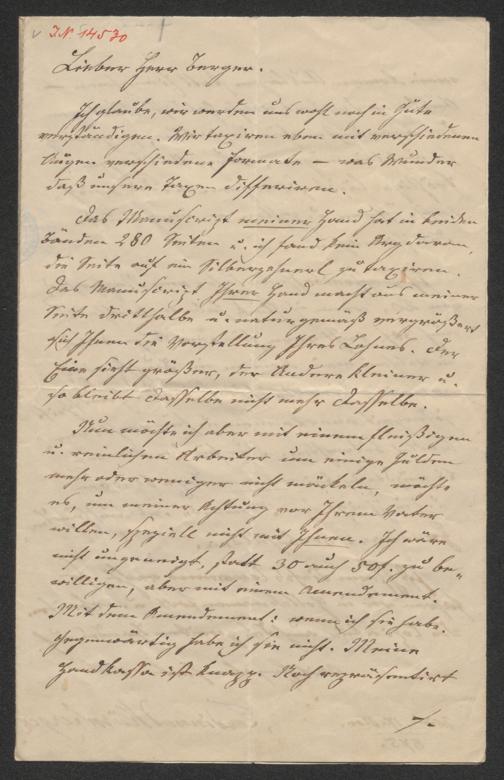 J.N. 14530
Lieber Herr Berger.
Ich glaube, wir werden uns wohl noch in Güte
verständigen. Wir taxiren eben mit verschiedenen
Augen verschiedene Formate – was Wunder
daß unsere Taxen differiren.
Das Manuscript meiner Hand hat in beiden
Bänden 280 Seiten u. ich fand kein Arg daran,
die Seite auf ein Silberzehnerl zu taxiren.
Das Manuscript Ihrer Hand macht aus meiner
Seite dritthalbe u. naturgemäß vergrößert
sich Ihnen die Vorstellung Ihres Lohnes. Der
Eine sieht größer, der Andere kleiner u.
so bleibt dasselbe nicht mehr dasselbe.
Nun möchte ich aber mit einem fleißigen
u. reinlichen Arbeiter um einige Gulden
mehr oder weniger nicht mäckeln, möchte
es, um meiner Achtung vor Ihrem Vater
willen, speziell nicht mit Ihnen. Ich wäre
nicht ungeneigt, statt 30 auch 50f. zu be-
willigen, aber mit einem Amendement.
Mit dem Amendement: wenn ich sie habe.
Gegenwärtig habe ich sie nicht. Meine
Handkassa ist knapp. Noch repräsentirt